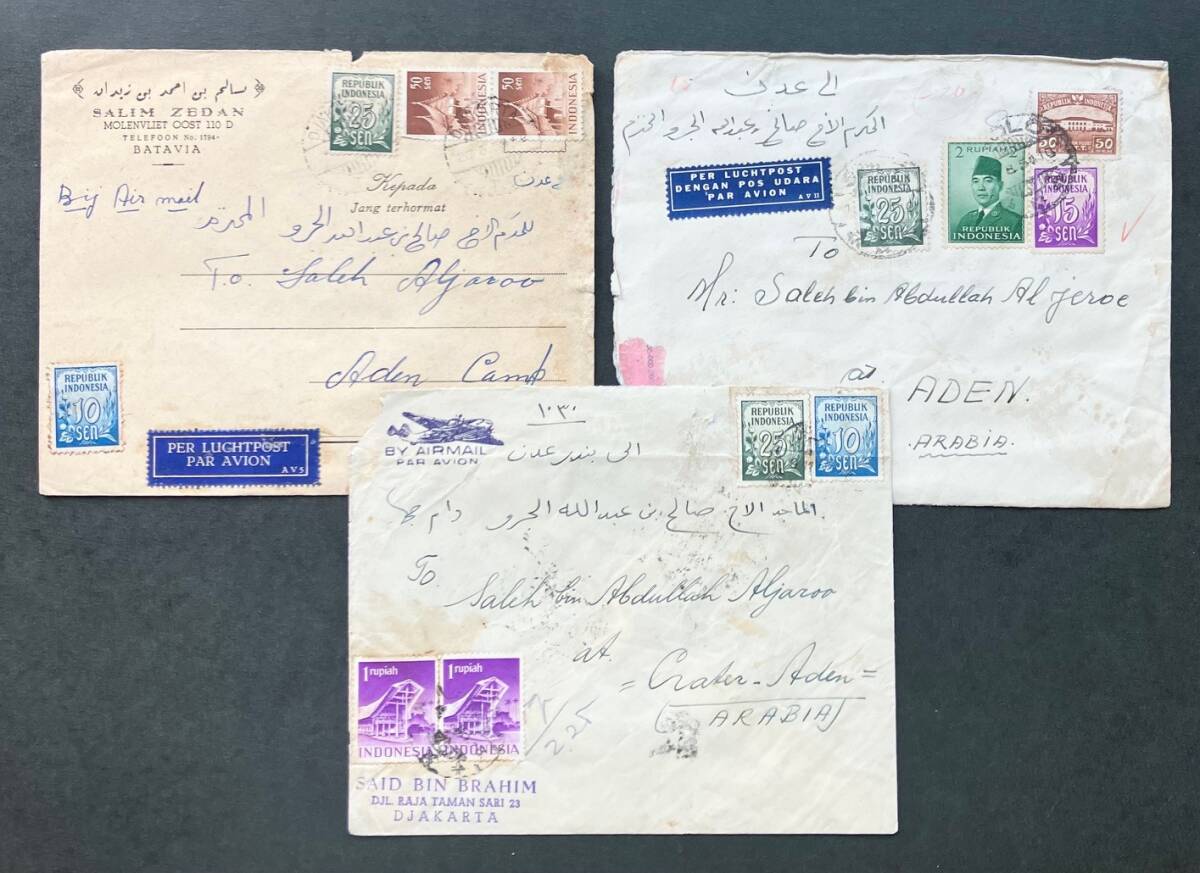 سالم بن احمد بن زيدان
SALIM ZEDAN
MOLENVLIET OOST 110 D
TELEFOON No. 1784
BATAVIA
REPUBLIK
INDONESIA
25
SEN
50
sen
INDONESIA
50
sen
INDONESIA
By Air mail
Kepada
Jang terhormat
عدن
صالح بن عبدالله الجرو المحترم
To Saleh Aljaroo
Aden Camp
REPUBLIK
INDONESIA
10
SEN
PER LUCHTPOST
PAR AVION
AV5
الى عدن
المكرم الاخ صالح عبدالله الجرو المحترم
PER LUCHTPOST
DENGAN POS UDARA
PAR AVION
AV11
REPUBLIK
INDONESIA
25
SEN
2 RUPIAH 2
REPUBLIK
INDONESIA
REPUBLIK INDONESIA
50 50
REPUBLIK
INDONESIA
15
SEN
To
Mr: Saleh bin Abdullah Al jeroe
at
ADEN.
ARABIA.
BY AIRMAIL
PAR AVION
١٠٣٠
الى بندر عدن
REPUBLIK
INDONESIA
25
SEN
REPUBLIK
INDONESIA
10
SEN
الماجد الاخ صالح بن عبدالله الجرو دام
To
Saleh bin Abdullah Aljaroo
at.
= Crater-Aden =
(ARABIA)
1 rupiah
INDONESIA
1 rupiah
INDONESIA
2.25
SAID BIN BRAHIM
DJL. RAJA TAMAN SARI 23
DJAKARTA